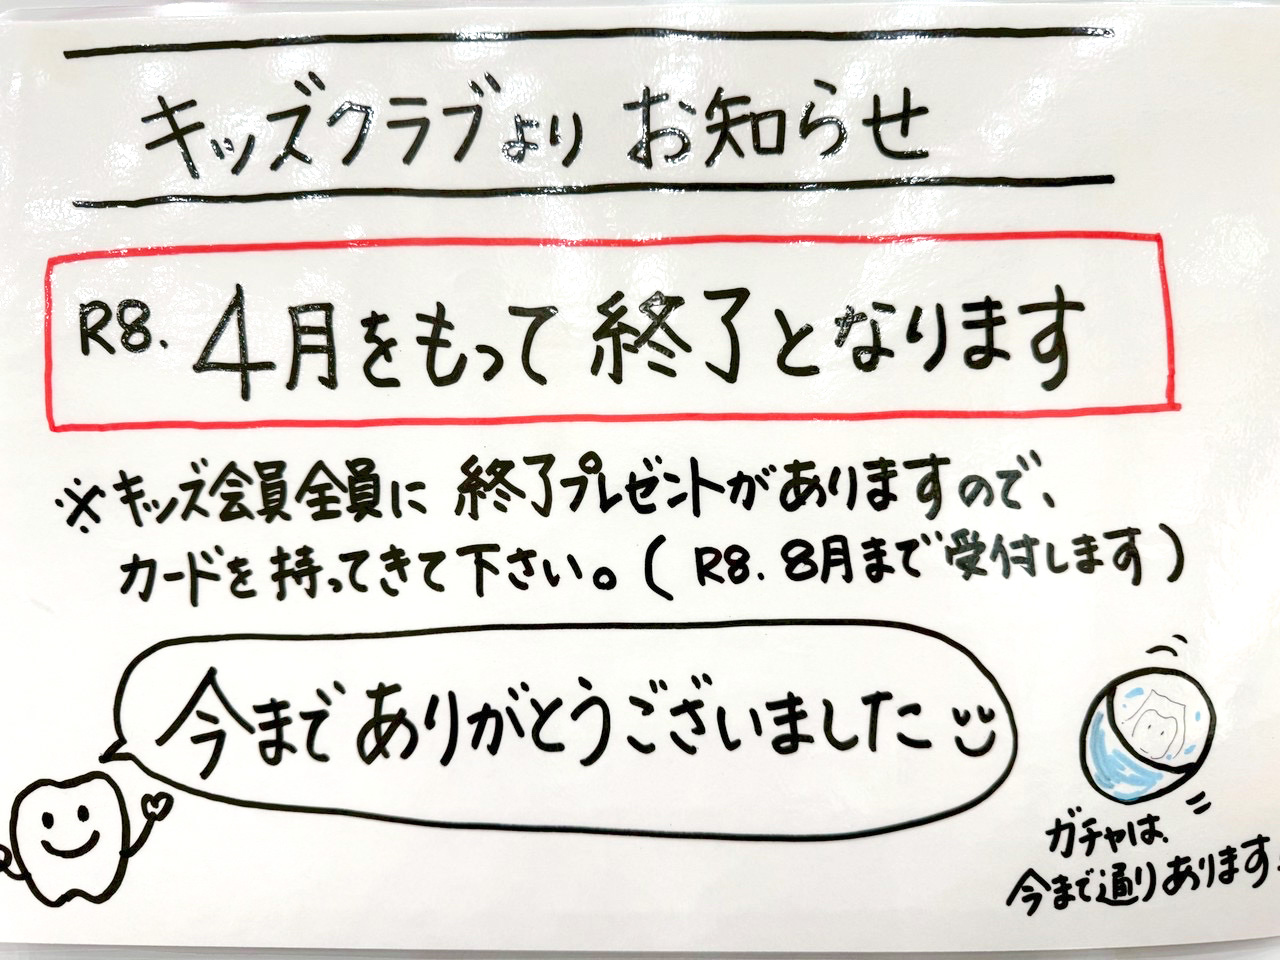 キッズクラブより お知らせ
R8. 4月をもって 終了となります
※キッズ会員全員に 終了プレゼントがありますので、
カードを持ってきて下さい。( R8. 8月まで受付します )
今までありがとうございました
ガチャは、
今まで通りあります。